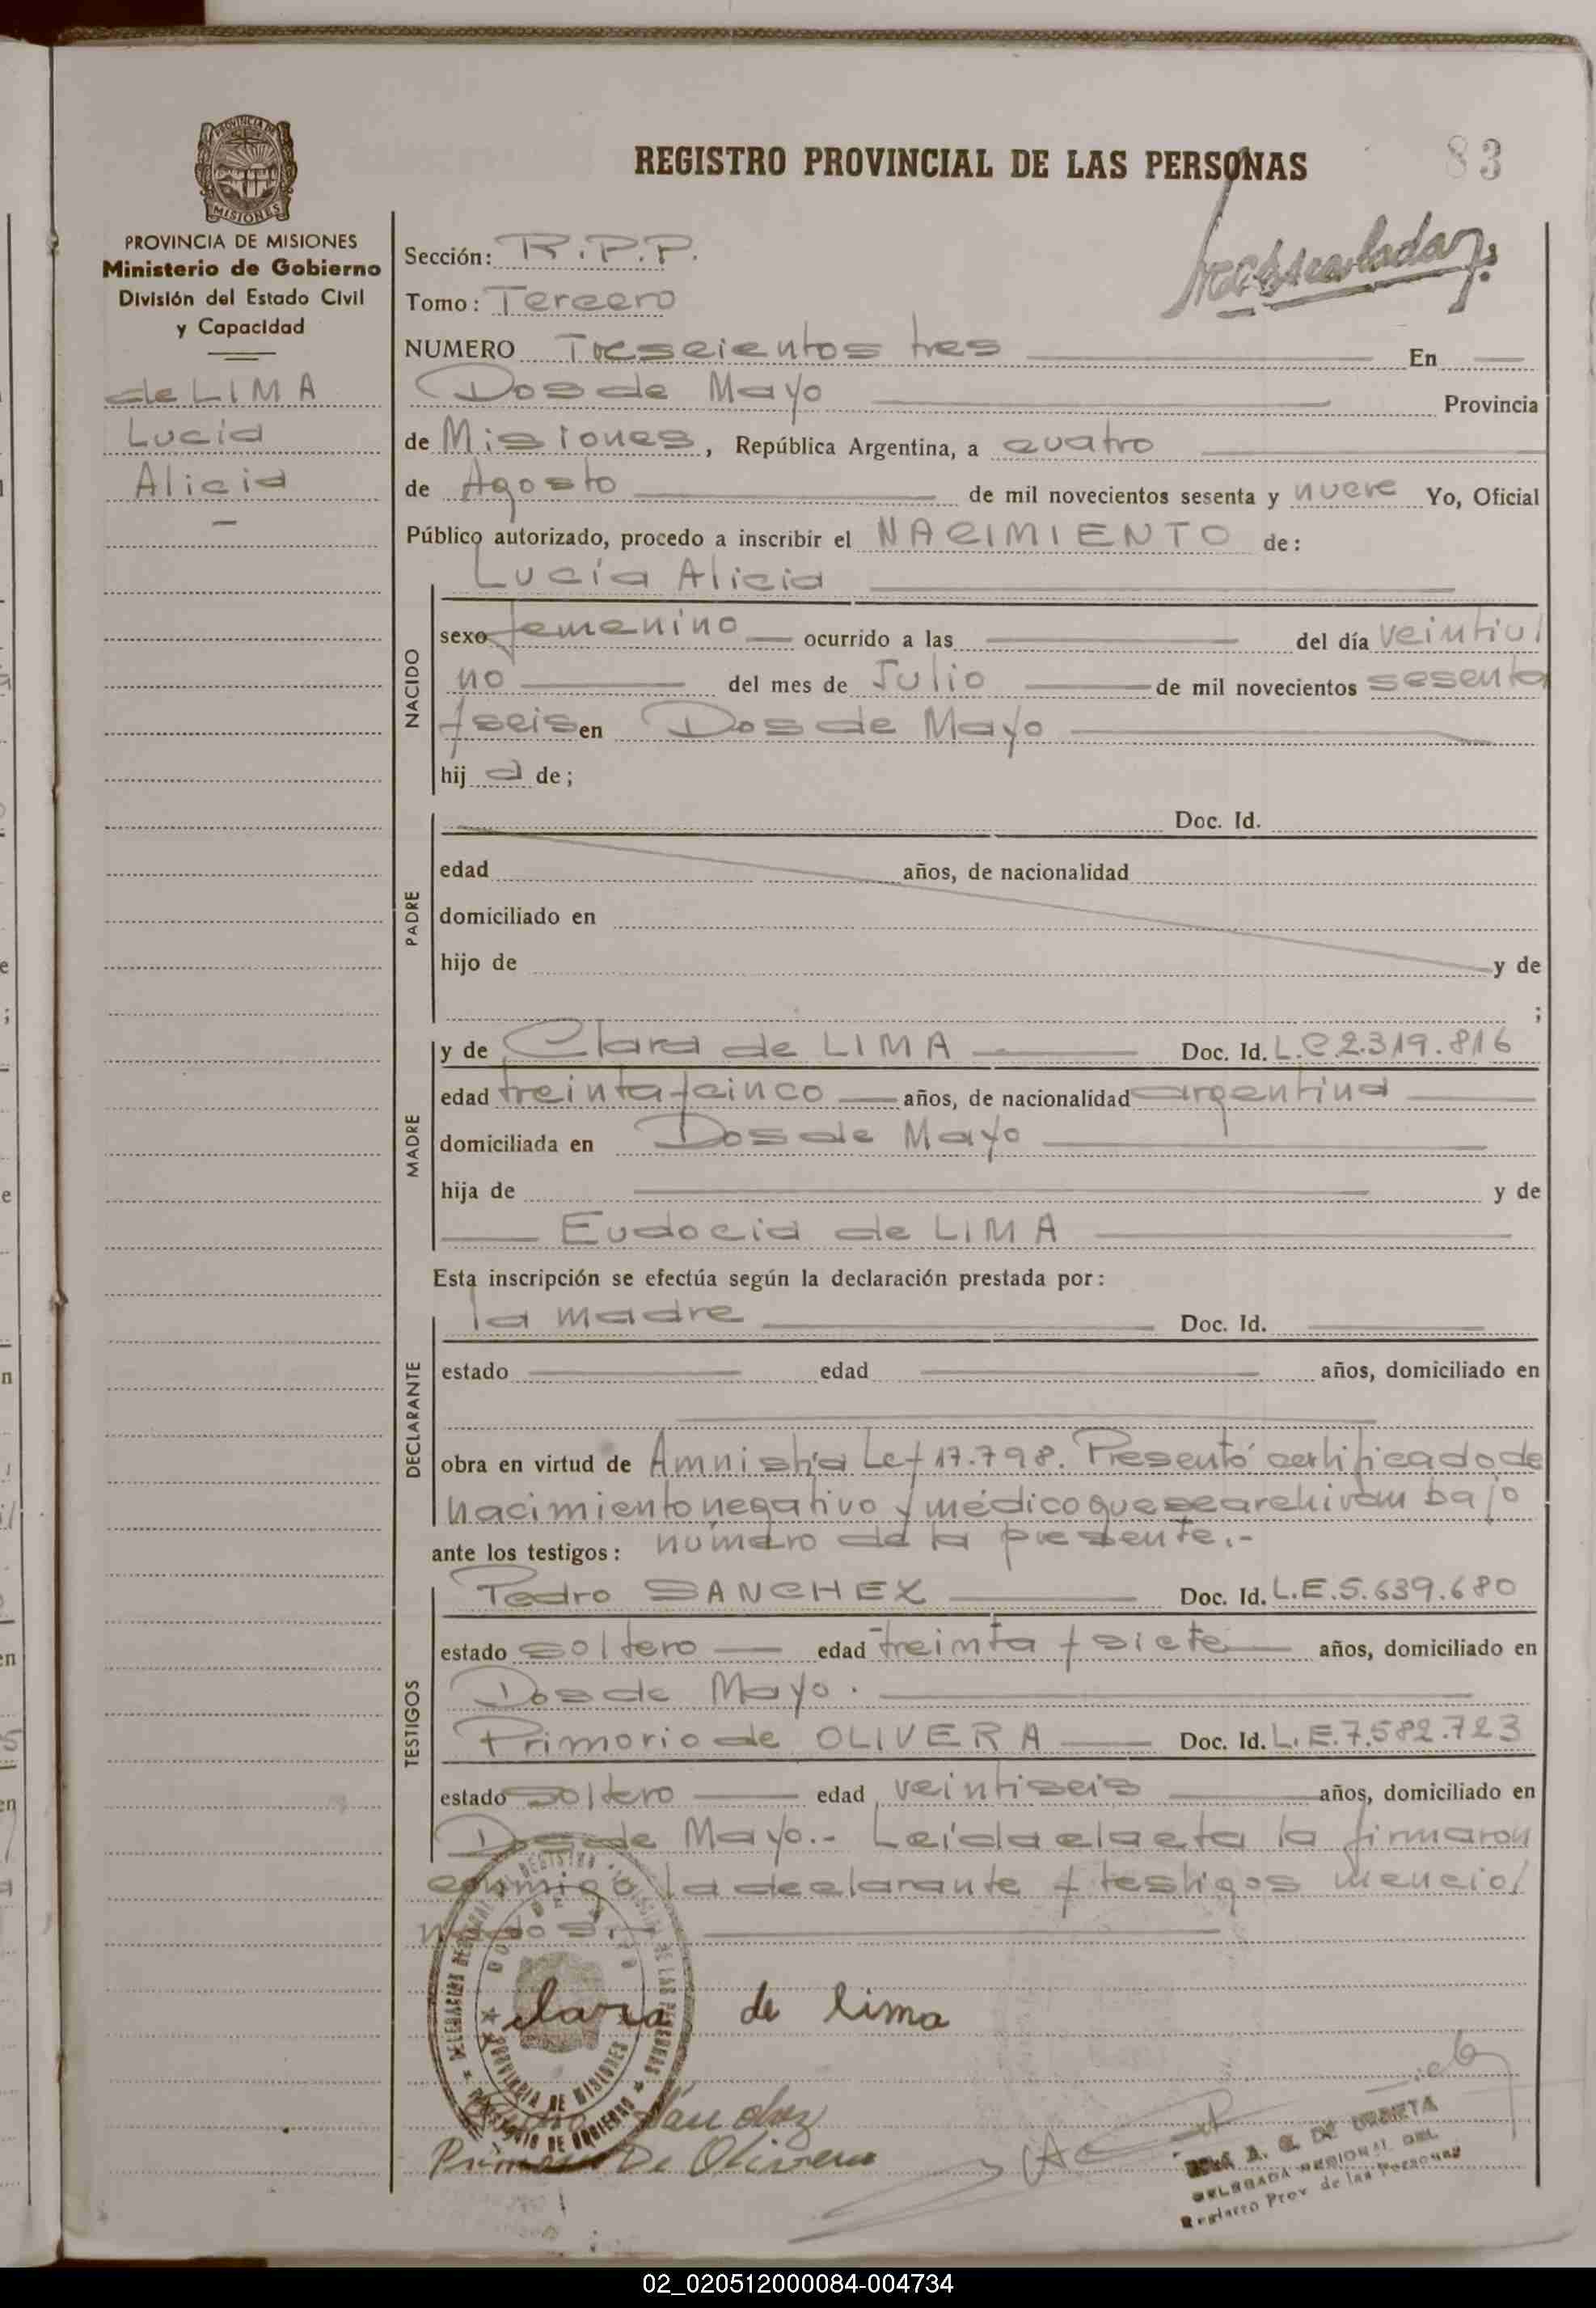 REGISTRO PROVINCIAL DE LAS PERSONAS
83
PROVINCIA DE MISIONES
Ministerio de Gobierno
División del Estado Civil
y Capacidad
de LIMA
Lucia
Alicia
Sección: R.P.P.
Tomo: Tercero
NUMERO Trescientos tres En
Dos de Mayo Provincia
de Misiones, República Argentina, a cuatro
de Agosto de mil novecientos sesenta y nueve Yo, Oficial
Público autorizado, procedo a inscribir el NACIMIENTO de:
Lucía Alicia
NACIDO
sexo femenino ocurrido a las del día veintiu/
no del mes de Julio de mil novecientos sesenta
y seis en Dos de Mayo
hij a de;
PADRE
Doc. Id.
edad años, de nacionalidad
domiciliado en
hijo de y de
;
MADRE
y de Clara de LIMA Doc. Id. L.C.2.319.816
edad treinta y cinco años, de nacionalidad argentina
domiciliada en Dos de Mayo
hija de y de
Eudocia de LIMA
Esta inscripción se efectúa según la declaración prestada por:
DECLARANTE
la madre Doc. Id.
estado edad años, domiciliado en
obra en virtud de Amnistía Ley 17.798. Presentó certificado de
nacimiento negativo y médico que se archivan bajo
número de la presente.-
ante los testigos:
TESTIGOS
Pedro SANCHEZ Doc. Id. L.E.5.639.680
estado soltero edad treinta y siete años, domiciliado en
Dos de Mayo.
Primorio de OLIVERA Doc. Id. L.E.7.582.723
estado soltero edad veintiseis años, domiciliado en
Dos de Mayo.- Leida el acta la firmaron
conmigo la declarante y testigos mencio/
nados.-
clara de lima
Sánchez
De Olivera
DELEGADA REGIONAL DEL
Registro Prov. de las Personas
PROVINCIA DE MISIONES
02_020512000084-004734